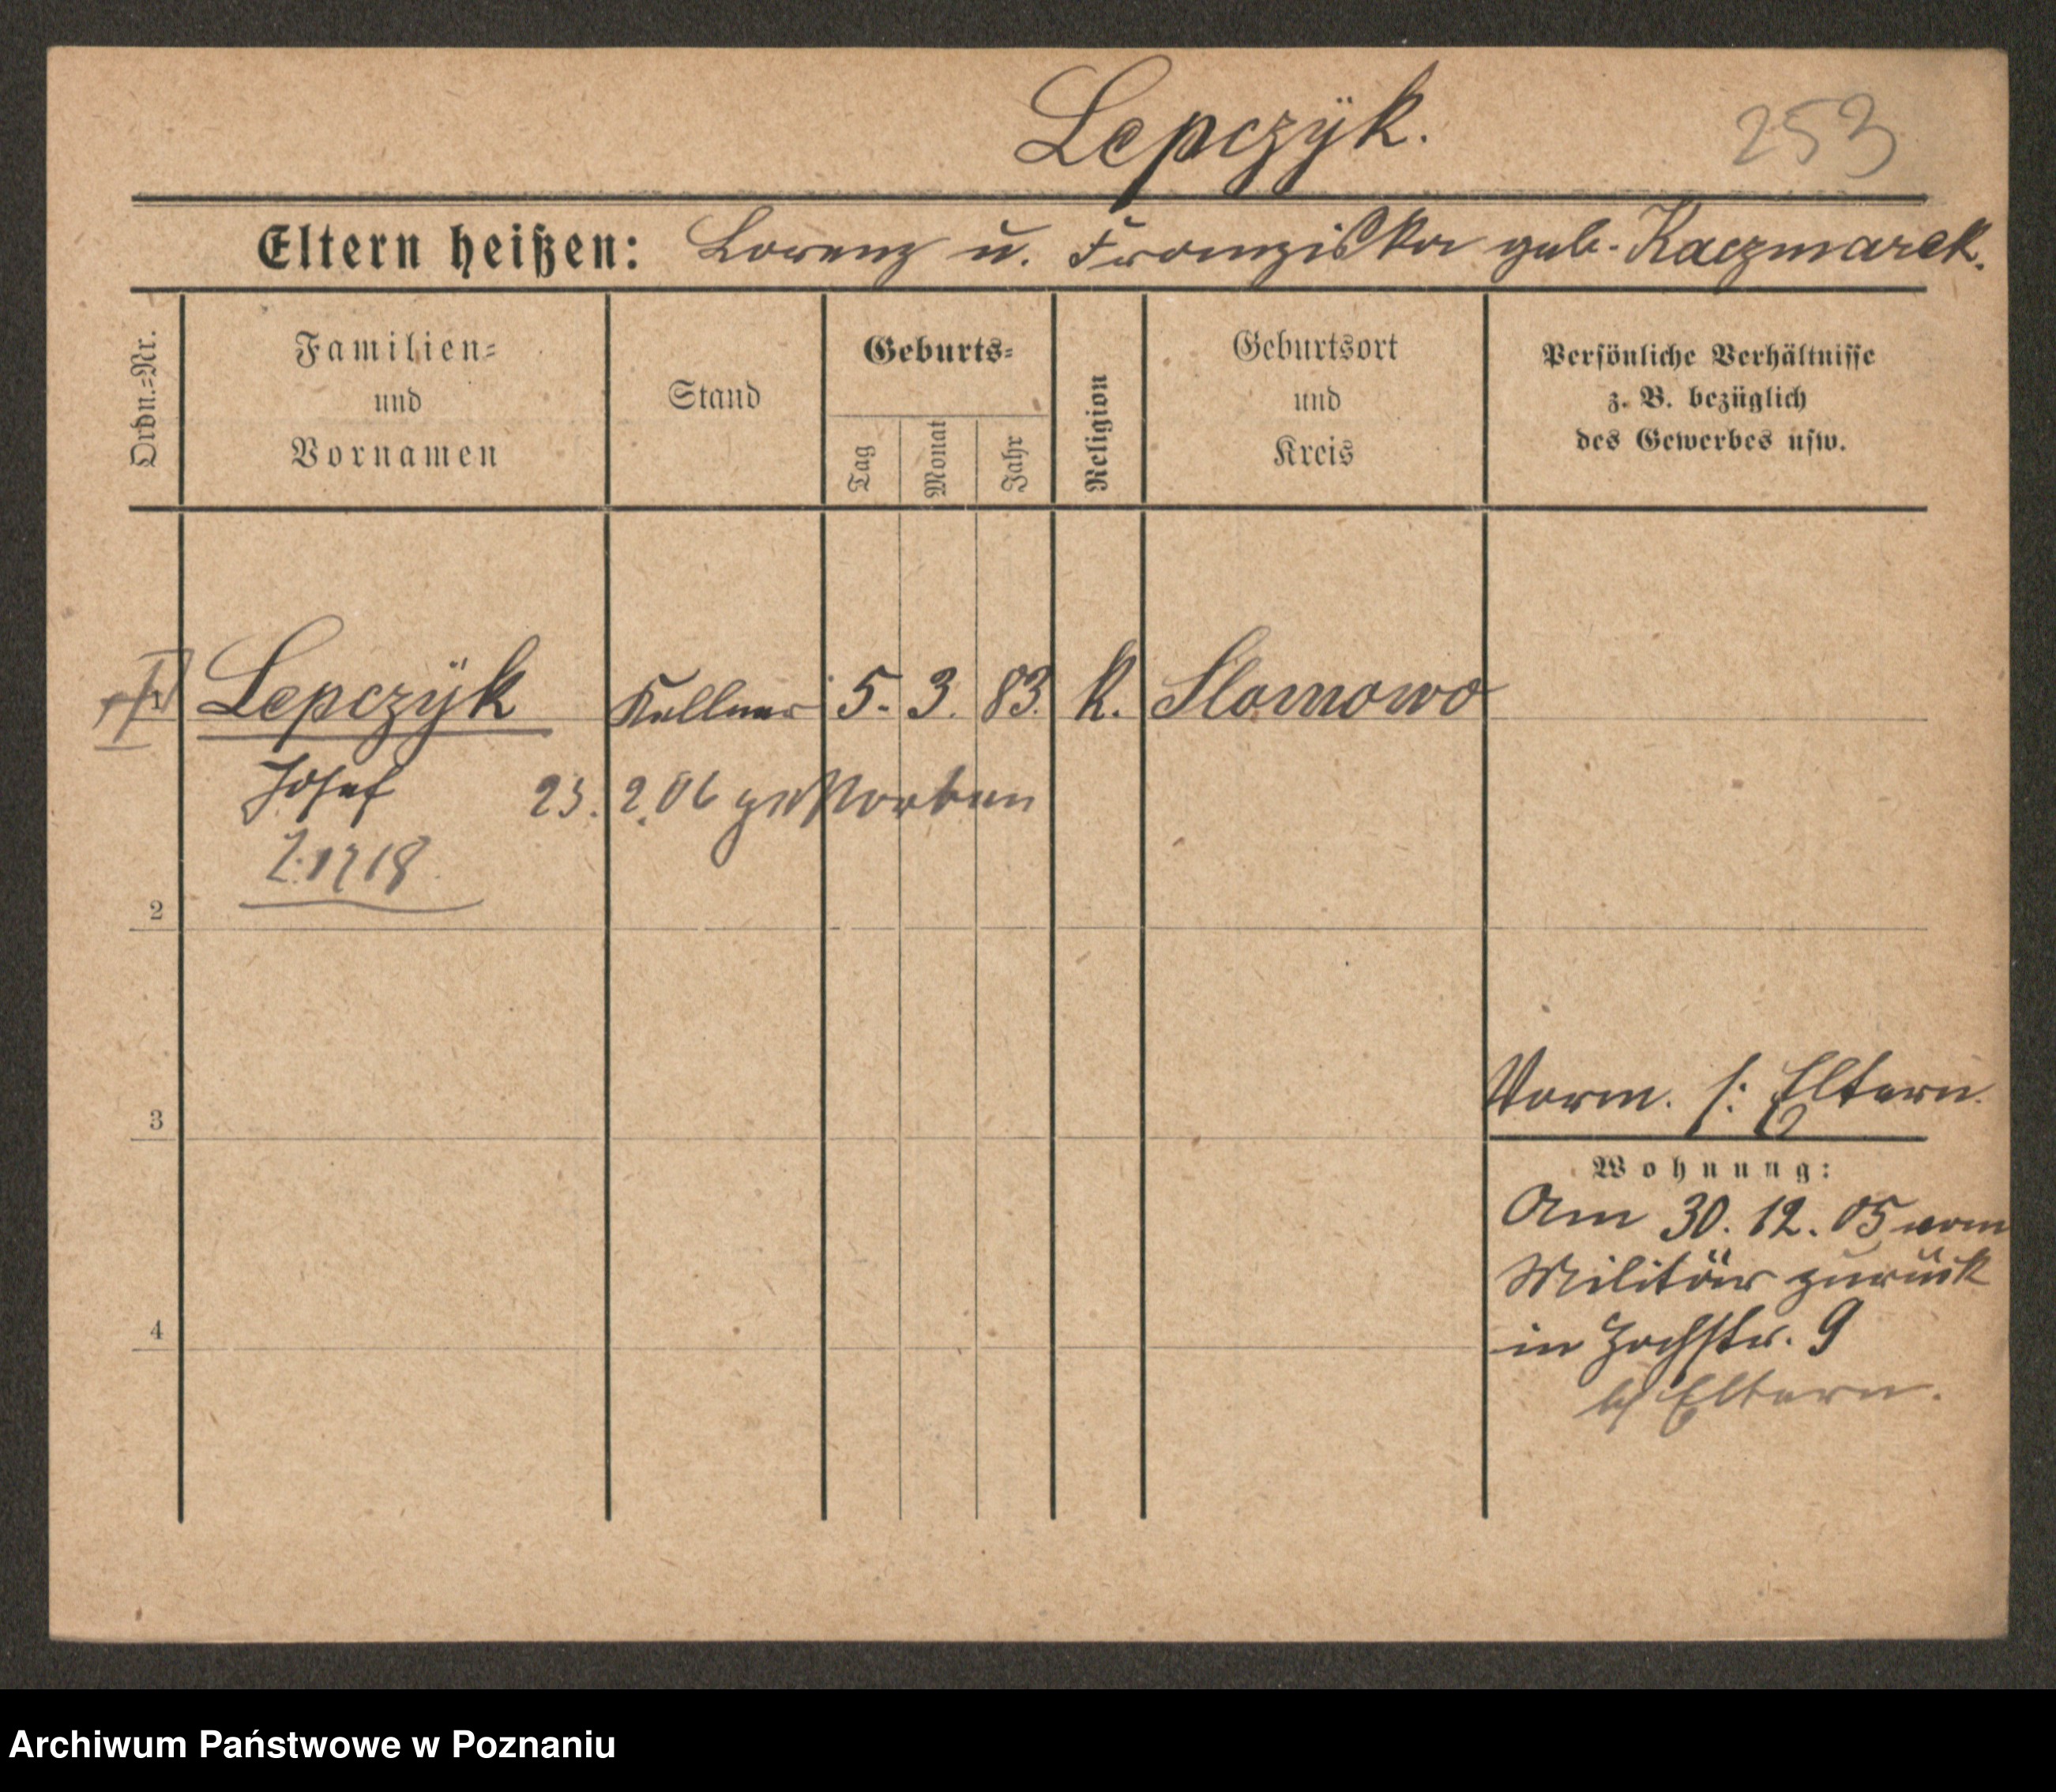 Lepczÿk.
253
Eltern heißen: Lorenz u. Franziska geb. Kaczmarek.
Ordn.=Nr.
Familien=
und
Vornamen
Stand
Geburts=
Tag
Monat
Jahr
Religion
Geburtsort
und
Kreis
Persönliche Verhältnisse
z. B. bezüglich
des Gewerbes usw.
Lepczÿk Kellner 5. 3. 83. k. Slomowo
Josef 23. 2. 06 gestorben
1718
2
3
Vorm. s: Eltern.
Wohnung:
Am 30. 12. 05 vom
Militär zurück
4
in Hochstr. 9
b/ Eltern.
Archiwum Państwowe w Poznaniu